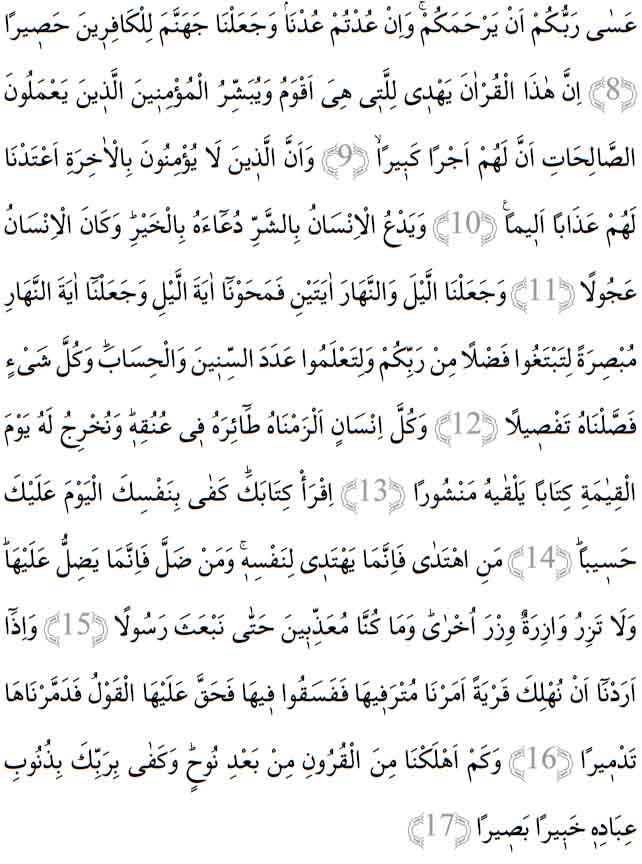 عَسٰى رَبُّكُمْ اَنْ يَرْحَمَكُمْۚ وَاِنْ عُدْتُمْ عُدْنَاۢ وَجَعَلْنَا جَهَنَّمَ لِلْكَافِر۪ينَ حَص۪يرًا
﴿8﴾ اِنَّ هٰذَا الْقُرْاٰنَ يَهْد۪ى لِلَّت۪ى هِىَ اَقْوَمُ وَيُبَشِّرُ الْمُؤْمِن۪ينَ الَّذ۪ينَ يَعْمَلُونَ
الصَّالِحَاتِ اَنَّ لَهُمْ اَجْرًا كَب۪يرًاۙ ﴿9﴾ وَاَنَّ الَّذ۪ينَ لَا يُؤْمِنُونَ بِالْاٰخِرَةِ اَعْتَدْنَا
لَهُمْ عَذَابًا اَل۪يمًاۚ ﴿10﴾ وَيَدْعُ الْاِنْسَانُ بِالشَّرِّ دُعَٓاءَهُ بِالْخَيْرِۜ وَكَانَ الْاِنْسَانُ
عَجُولًا ﴿11﴾ وَجَعَلْنَا الَّيْلَ وَالنَّهَارَ اٰيَتَيْنِ فَمَحَوْنَٓا اٰيَةَ الَّيْلِ وَجَعَلْنَٓا اٰيَةَ النَّهَارِ
مُبْصِرَةً لِتَبْتَغُوا فَضْلًا مِنْ رَبِّكُمْ وَلِتَعْلَمُوا عَدَدَ السِّن۪ينَ وَالْحِسَابَۜ وَكُلَّ شَىْءٍ
فَصَّلْنَاهُ تَفْص۪يلًا ﴿12﴾ وَكُلَّ اِنْسَانٍ اَلْزَمْنَاهُ طَٓائِرَهُ ف۪ى عُنُقِه۪ۜ وَنُخْرِجُ لَهُ يَوْمَ
الْقِيٰمَةِ كِتَابًا يَلْقٰيهُ مَنْشُورًا ﴿13﴾ اِقْرَأْ كِتَابَكَۜ كَفٰى بِنَفْسِكَ الْيَوْمَ عَلَيْكَ
حَس۪يبًاۜ ﴿14﴾ مَنِ اهْتَدٰى فَاِنَّمَا يَهْتَد۪ى لِنَفْسِه۪ۚ وَمَنْ ضَلَّ فَاِنَّمَا يَضِلُّ عَلَيْهَاۜ
وَلَا تَزِرُ وَازِرَةٌ وِزْرَ اُخْرٰىۜ وَمَا كُنَّا مُعَذِّب۪ينَ حَتّٰى نَبْعَثَ رَسُولًا ﴿15﴾ وَاِذَٓا
اَرَدْنَٓا اَنْ نُهْلِكَ قَرْيَةً اَمَرْنَا مُتْرَف۪يهَا فَفَسَقُوا ف۪يهَا فَحَقَّ عَلَيْهَا الْقَوْلُ فَدَمَّرْنَاهَا
تَدْم۪يرًا ﴿16﴾ وَكَمْ اَهْلَكْنَا مِنَ الْقُرُونِ مِنْ بَعْدِ نُوحٍۜ وَكَفٰى بِرَبِّكَ بِذُنُوبِ
عِبَادِه۪ خَب۪يرًا بَص۪يرًا ﴿17﴾